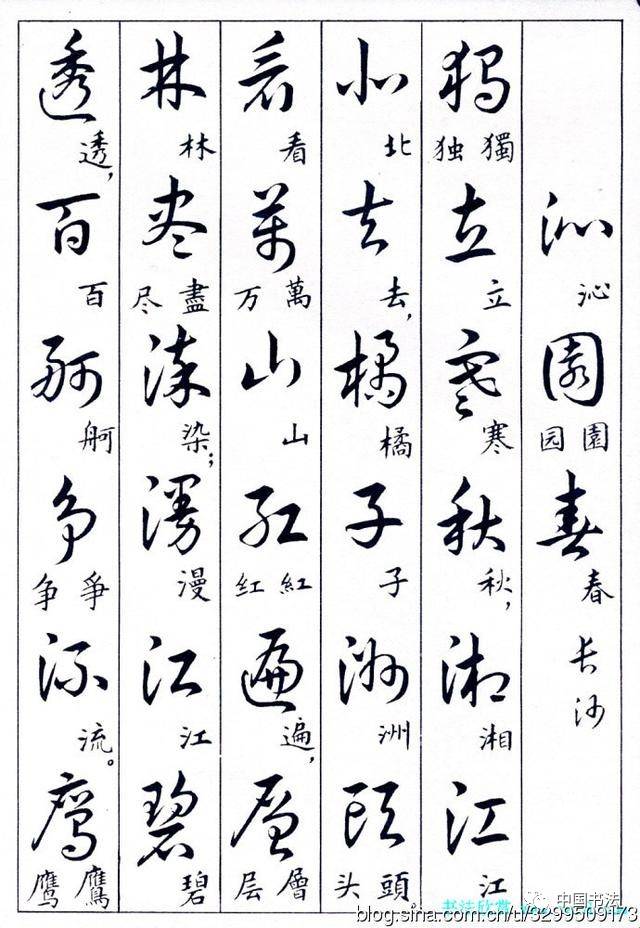 沁 沁 園 園 园 春 春 长沙
獨 獨 独 立 立 寒 寒 秋 秋， 湘 湘 江 江
北 北 去 去， 橘 橘 子 子 洲 洲 頭 頭 头。
看 看 萬 萬 万 山 山 紅 紅 红 遍 遍， 層 層 层
林 林 盡 盡 尽 染 染； 漫 漫 江 江 碧 碧
透 透， 百 百 舸 舸 爭 爭 争 流 流。 鷹 鷹 鹰
书法欣赏
中国书法
blog.sina.com.cn/u/3299509173